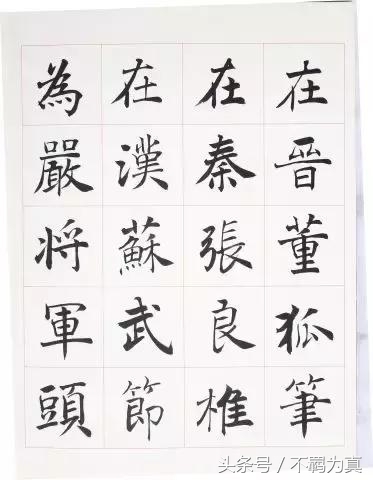 在晉董狐筆
在秦張良椎
在漢蘇武節
為嚴将軍頭
头条号 / 不羁为真